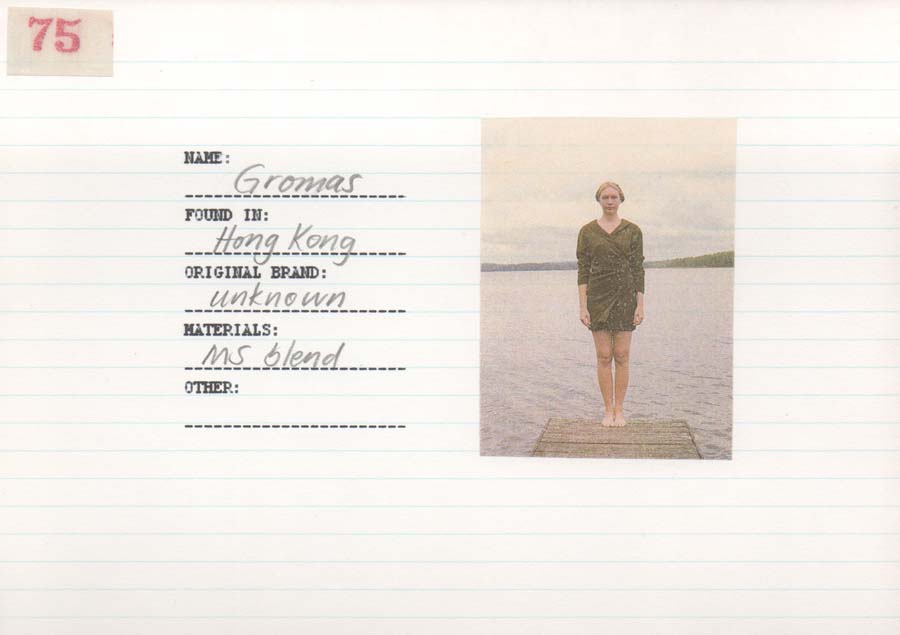 75
NAME:
Gromas
FOUND IN:
Hong Kong
ORIGINAL BRAND:
unknown
MATERIALS:
MS blend
OTHER: